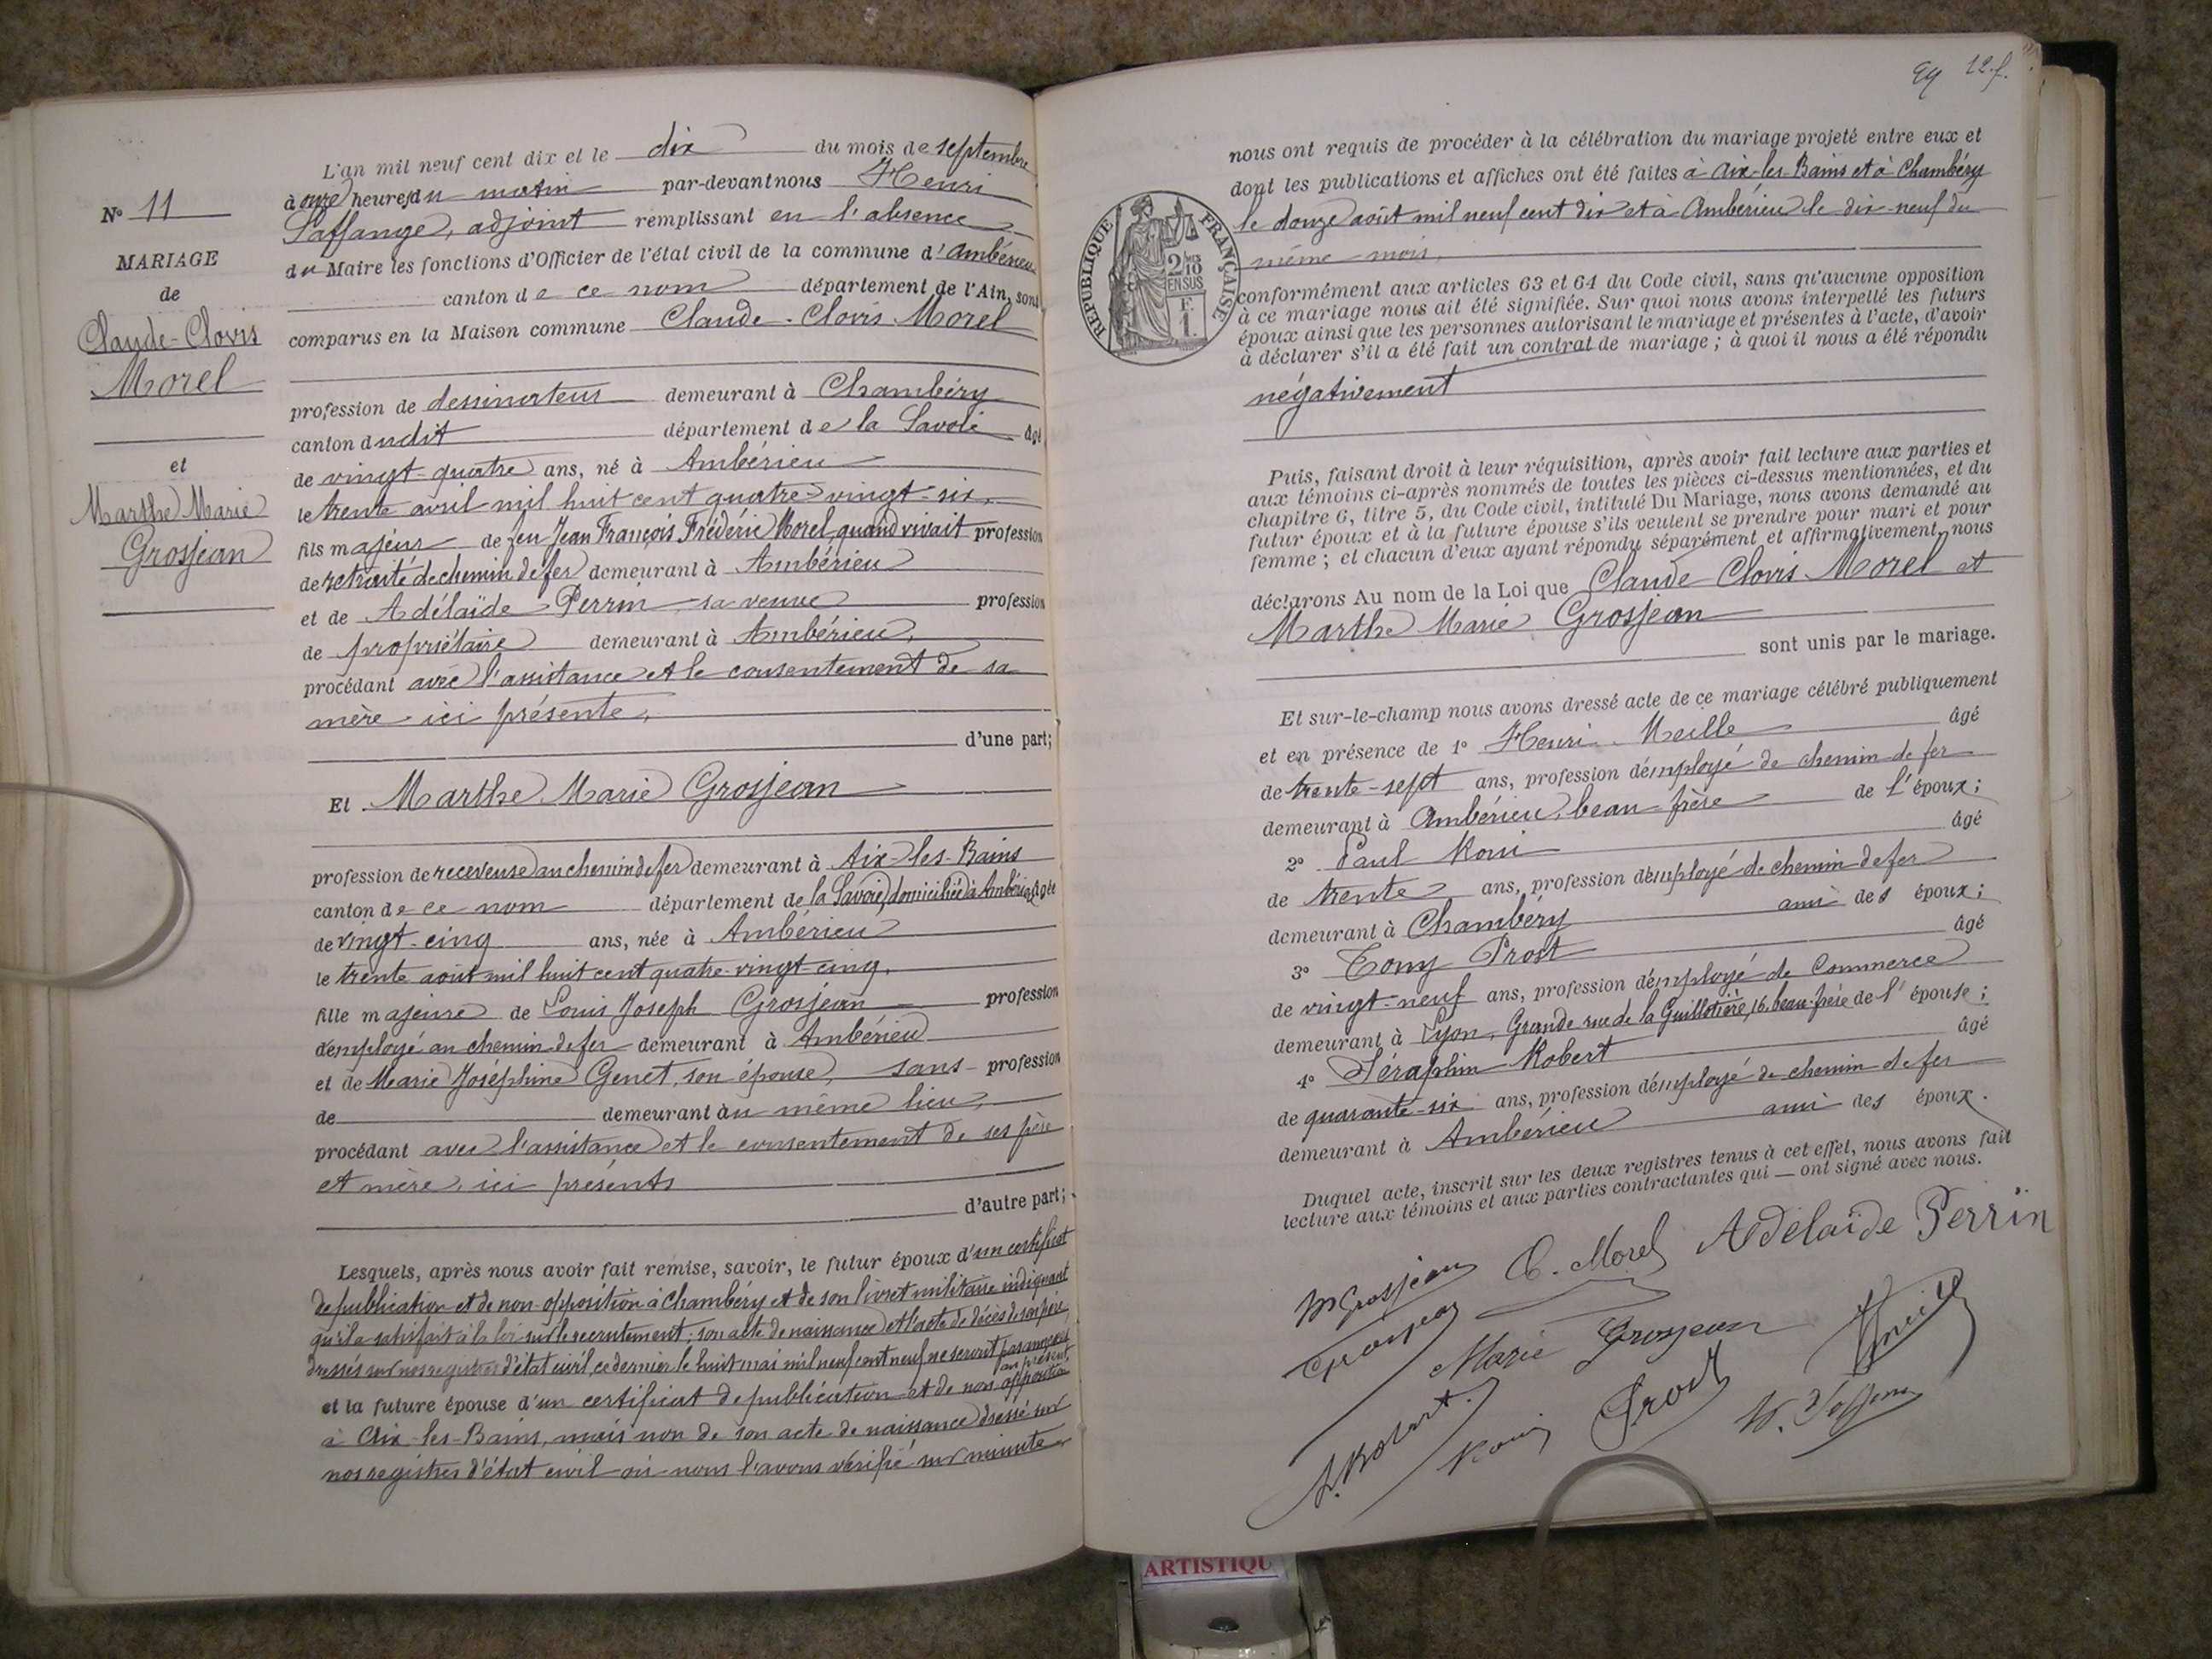 N° 11
MARIAGE
de
Claude-Clovis
Morel
et
Marthe Marie
Grosjean
L'an mil neuf cent dix et le dix du mois de septembre
à onze heures du matin par-devant nous Henri
Laffange, adjoint remplissant en l'absence
du Maire les fonctions d'Officier de l'état civil de la commune d'Ambérieu
canton de ce nom département de l'Ain, sont
comparus en la Maison commune Claude-Clovis Morel
profession de dessinateur demeurant à Chambéry
canton dudit département de la Savoie âgé
de vingt-quatre ans, né à Ambérieu
le trente avril mil huit cent quatre-vingt-six,
fils majeur de feu Jean François Frédéric Morel, quand vivait profession
de retraité de chemin de fer demeurant à Ambérieu
et de Adélaïde Perrin, sa veuve profession
de propriétaire demeurant à Ambérieu,
procédant avec l'assistance et le consentement de sa
mère ici présente,
d'une part;
Et Marthe Marie Grosjean
profession de receveuse au chemin de fer demeurant à Aix-les-Bains
canton de ce nom département de la Savoie, domiciliée à Ambérieu, âgée
de vingt-cinq ans, née à Ambérieu
le trente août mil huit cent quatre-vingt-cinq,
fille majeure de Louis Joseph Grosjean profession
d'employé au chemin de fer demeurant à Ambérieu
et de Marie Joséphine Genet, son épouse, sans profession
de demeurant au même lieu,
procédant avec l'assistance et le consentement de ses père
et mère, ici présents
d'autre part;
Lesquels, après nous avoir fait remise, savoir, le futur époux d'un certificat
de publication et de non opposition à Chambéry et de son livret militaire indiquant
qu'il a satisfait à la loi sur le recrutement; son acte de naissance et l'acte de décès de son père,
dressés sur nos registres d'état civil, ce dernier le huit mai mil neuf cent neuf ne seront pas annexés
au présent,
et la future épouse d'un certificat de publication et de non opposition
à Aix-les-Bains, mais non de son acte de naissance dressé sur
nos registres d'état civil où nous l'avons vérifié sur minute
12.f.
RÉPUBLIQUE FRANÇAISE
2/10
EN SUS
F.
1.
nous ont requis de procéder à la célébration du mariage projeté entre eux et
dont les publications et affiches ont été faites à Aix-les-Bains et à Chambéry
le douze août mil neuf cent dix et à Ambérieu le dix-neuf du
même mois,
conformément aux articles 63 et 64 du Code civil, sans qu'aucune opposition
à ce mariage nous ait été signifiée. Sur quoi nous avons interpellé les futurs
époux ainsi que les personnes autorisant le mariage et présentes à l'acte, d'avoir
à déclarer s'il a été fait un contrat de mariage; à quoi il nous a été répondu
négativement
Puis, faisant droit à leur réquisition, après avoir fait lecture aux parties et
aux témoins ci-après nommés de toutes les pièces ci-dessus mentionnées, et du
chapitre 6, titre 5, du Code civil, intitulé Du Mariage, nous avons demandé au
futur époux et à la future épouse s'ils veulent se prendre pour mari et pour
femme; et chacun d'eux ayant répondu séparément et affirmativement, nous
déclarons Au nom de la Loi que Claude Clovis Morel et
Marthe Marie Grosjean
sont unis par le mariage.
Et sur-le-champ nous avons dressé acte de ce mariage célébré publiquement
et en présence de 1° Henri Meille âgé
de trente-sept ans, profession d'employé de chemin de fer
demeurant à Ambérieu, beau-frère de l'époux;
2° Paul âgé
de trente ans, profession d'employé de chemin de fer
demeurant à Chambéry ami des époux;
3° Tony Prost âgé
de vingt-neuf ans, profession d'employé de commerce
demeurant à Lyon, Grande rue de la Guillotière, 16, beau-frère de l'épouse;
4° Séraphin Robert âgé
de quarante-six ans, profession d'employé de chemin de fer
demeurant à Ambérieu ami des époux.
Duquel acte, inscrit sur les deux registres tenus à cet effet, nous avons fait
lecture aux témoins et aux parties contractantes qui — ont signé avec nous.
M Grosjean C. Morel Adelaïde Perrin
Grosjean
Marie Grosjean
S. Robert. Prost
ARTISTIQU